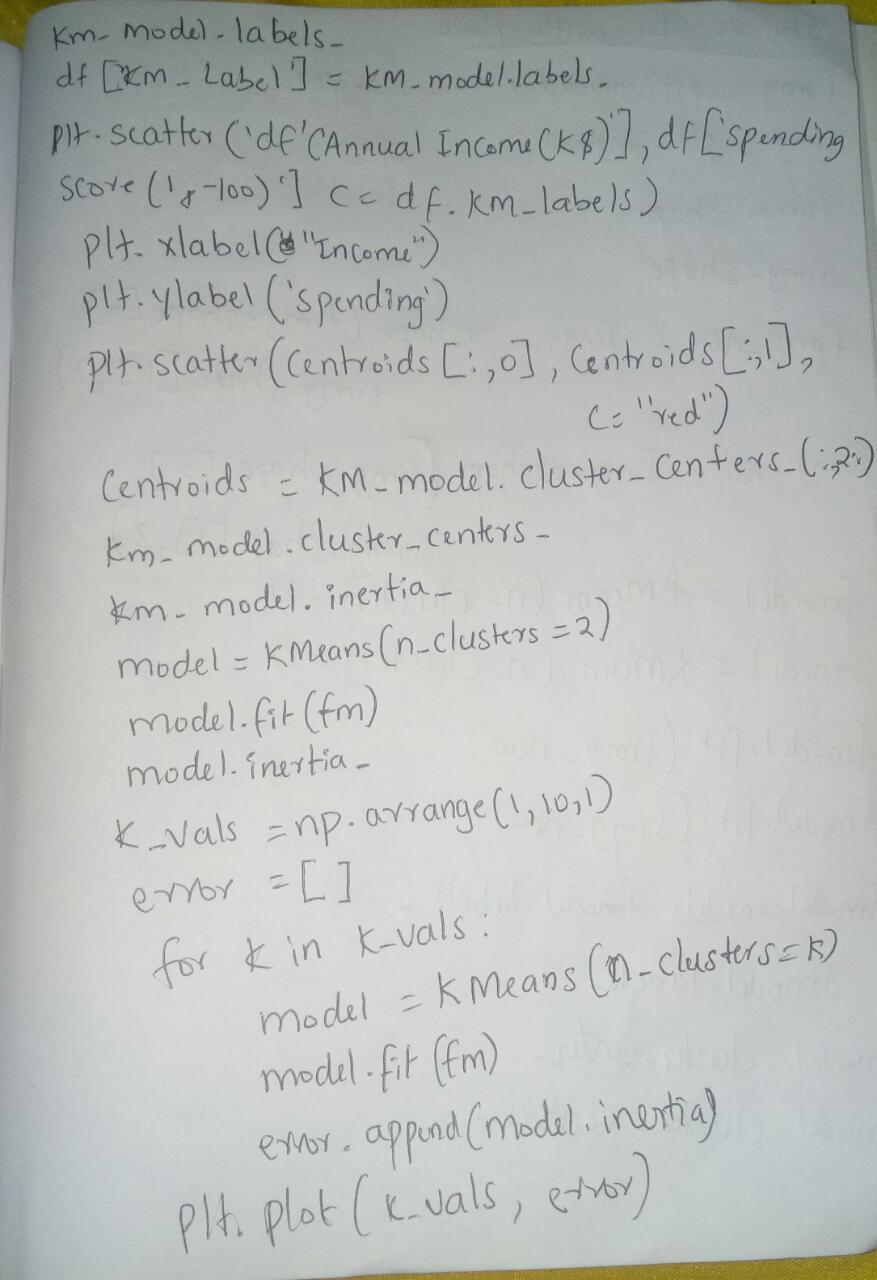 Km_model.labels_
df ['Km_Label'] = KM_model.labels_
plt.scatter ('df'(Annual Income (K$)'], df['spending
score (1,-100)'] c= df.km_labels)
plt.xlabel("Income")
plt.ylabel ('spending')
plt.scatter (Centroids [:,0], Centroids [:,1],
c="red")
Centroids = KM_model.cluster_centers_(:,2:)
Km_model.cluster_centers_
km_model.inertia_
model = KMeans(n_clusters=2)
model.fit(fm)
model.inertia_
K_vals = np.arrange(1,10,1)
error = []
for k in K_vals:
model = KMeans(n_clusters=k)
model.fit (fm)
error.append(model.inertia)
plt.plot (K_vals, error)